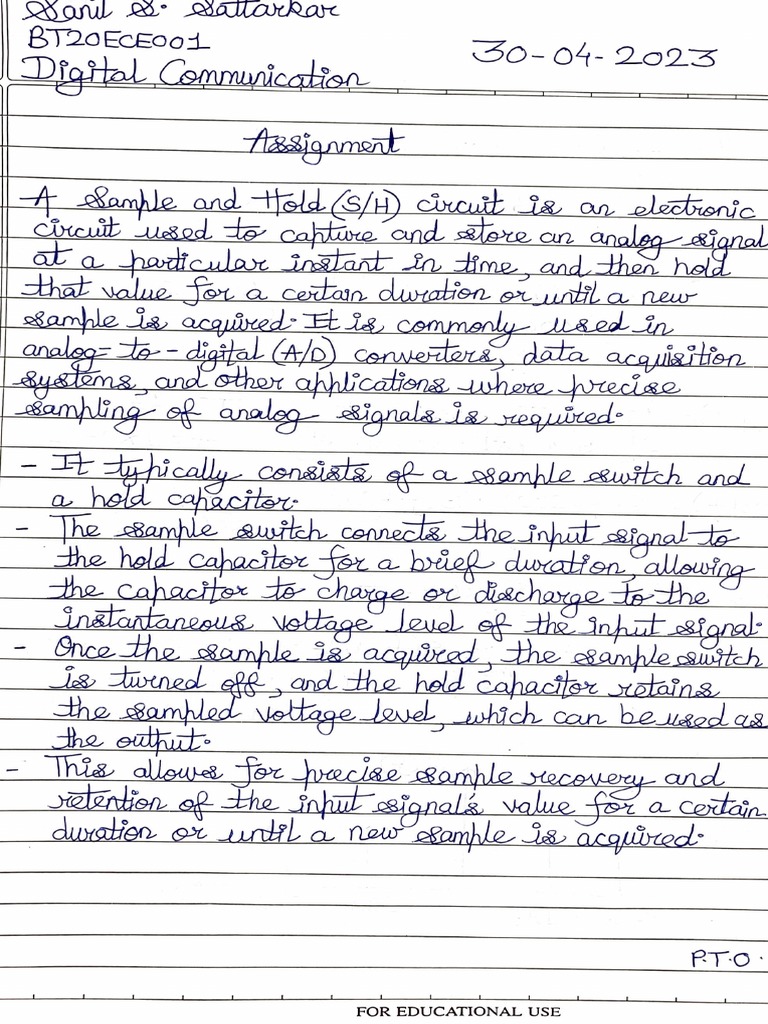 Sanil S. Sattarkar
BT20ECE001
30-04-2023
Digital Communication
Assignment
A Sample and Hold (S/H) circuit is an electronic
circuit used to capture and store an analog signal
at a particular instant in time, and then hold
that value for a certain duration or until a new
sample is acquired. It is commonly used in
analog-to-digital (A/D) converters, data acquisition
systems, and other applications where precise
sampling of analog signals is required.
- It typically consists of a sample switch and
a hold capacitor.
- The sample switch connects the input signal to
the hold capacitor for a brief duration, allowing
the capacitor to charge or discharge to the
instantaneous voltage level of the input signal.
- Once the sample is acquired, the sample switch
is turned off, and the hold capacitor retains
the sampled voltage level, which can be used as
the output.
- This allows for precise sample recovery and
retention of the input signals value for a certain
duration or until a new sample is acquired.
P.T.O.
FOR EDUCATIONAL USE